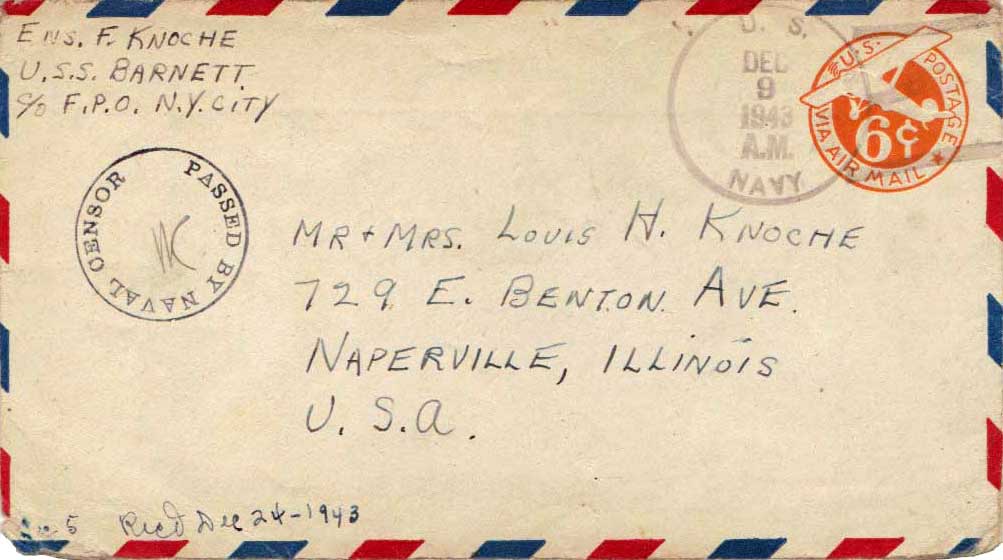 ENS. F. KNOCHE
U.S.S. BARNETT
c/o F.P.O. N.Y. CITY
U. S.
DEC
9
1943
A.M.
NAVY
U.S. POSTAGE
6¢
VIA AIR MAIL
PASSED BY NAVAL CENSOR
MR + MRS. LOUIS H. KNOCHE
729 E. BENTON AVE.
NAPERVILLE, ILLINOIS
U. S. A.
5 Rec'd Dec 24-1943